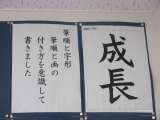 成長
筆順と字形
筆順と画の
付き方を意識して
書きました